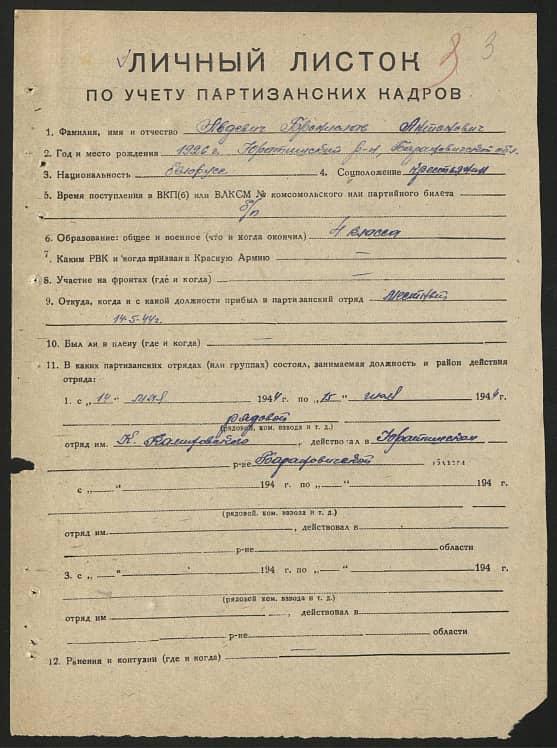 3 3
ЛИЧНЫЙ ЛИСТОК
ПО УЧЕТУ ПАРТИЗАНСКИХ КАДРОВ
1. Фамилия, имя и отчество Авдевич Бронислав Антонович
2. Год и место рождения 1926 г. Юратишский р-н Барановичской обл.
3. Национальность белорус 4. Соцположение крестьянин
5. Время поступления в ВКП(б) или ВЛКСМ № комсомольского или партийного билета
б/п
6. Образование: общее и военное (что и когда окончил) 4 класса
7. Каким РВК и когда призван в Красную Армию —
8. Участие на фронтах (где и когда) —
9. Откуда, когда и с какой должности прибыл в партизанский отряд местный
14-5-44г.
10. Был ли в плену (где и когда) —
11. В каких партизанских отрядах (или группах) состоял, занимаемая должность и район действия
отряда:
1. с „14" мая 1944 г. по „15" июля 1944 г.
рядовой
(рядовой, ком. взвода и т. д.)
отряд им. К. Калиновского, действовал в Юратишском
р-не Барановичской области
с „ " 194 г. по „ " 194 г.
(рядовой, ком. взвода и т. д.)
отряд им. , действовал в
р-не области
3. с „ " 194 г. по „ " 194 г.
(рядовой, ком. взвода и т. д.)
отряд им , действовал в
р-не области
12. Ранения и контузии (где и когда) —